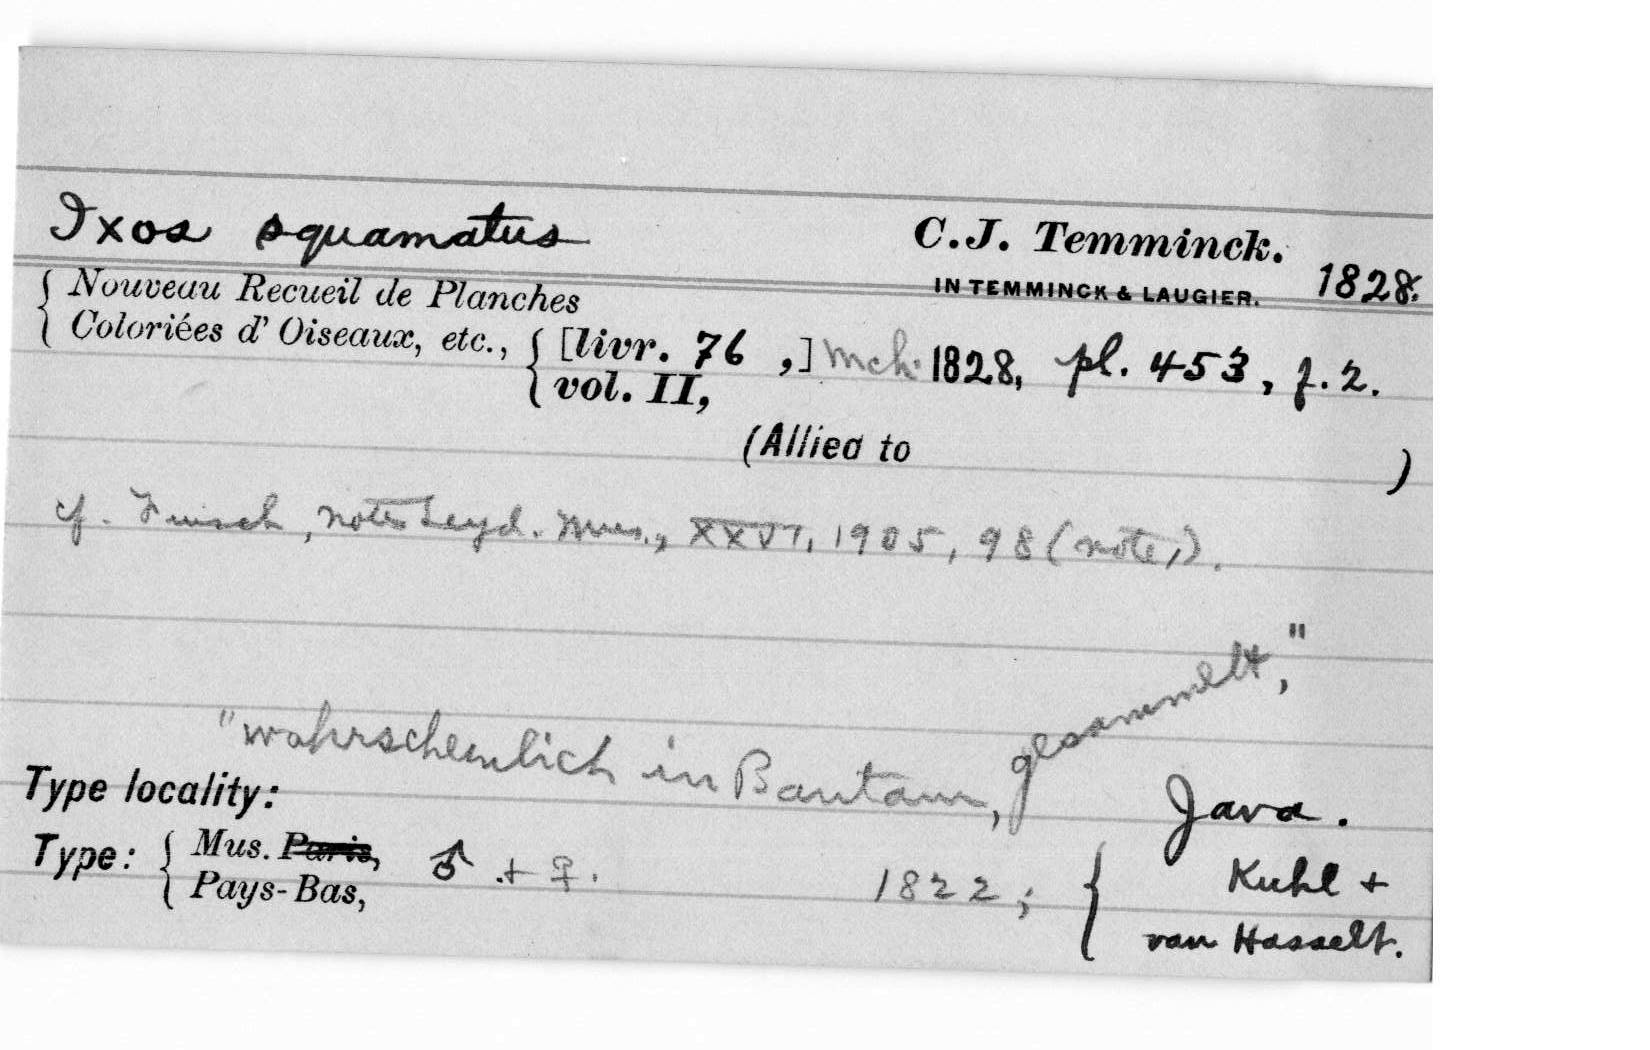 Ixos squamatus C.J. Temminck.
IN TEMMINCK & LAUGIER. 1828.
{ Nouveau Recueil de Planches
Coloriées d' Oiseaux, etc., { [livr. 76 ,] Mch. 1828, pl. 453, f. 2.
vol. II,
(Allied to )
cf. Finsch, Notes Leyd. Mus., XXVI, 1905, 98 (note,).
"wahrscheinlich in Bantam, gesammelt,"
Type locality: Java.
Type: { Mus. Paris, ♂ + ♀. 1822; { Kuhl +
Pays-Bas, van Hasselt.